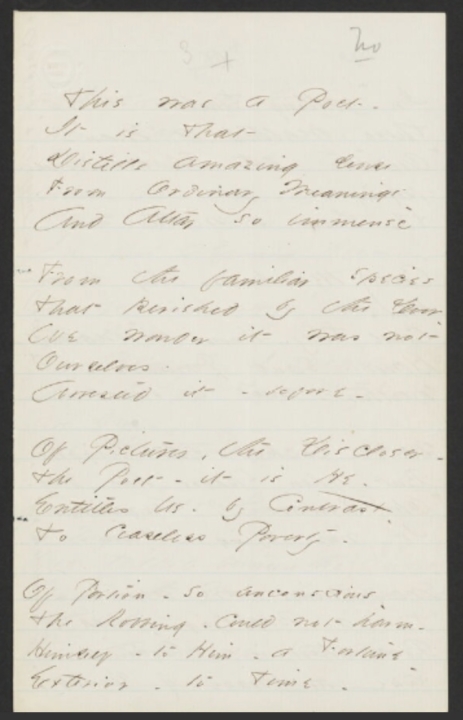 No
3 +
This was a Poet -
It is That
Distills amazing sense
From Ordinary Meanings
And Attar so immense
From the familiar species
That perished by the Door
We wonder it was not
Ourselves
Arrested it - before -
Of Pictures, the Discloser -
The Poet - it is He -
Entitles Us - by Contrast
To ceaseless Poverty.
Of Portion - so unconscious
The Robbing - could not harm -
Himself - to Him - a Fortune
Exterior - to Time -